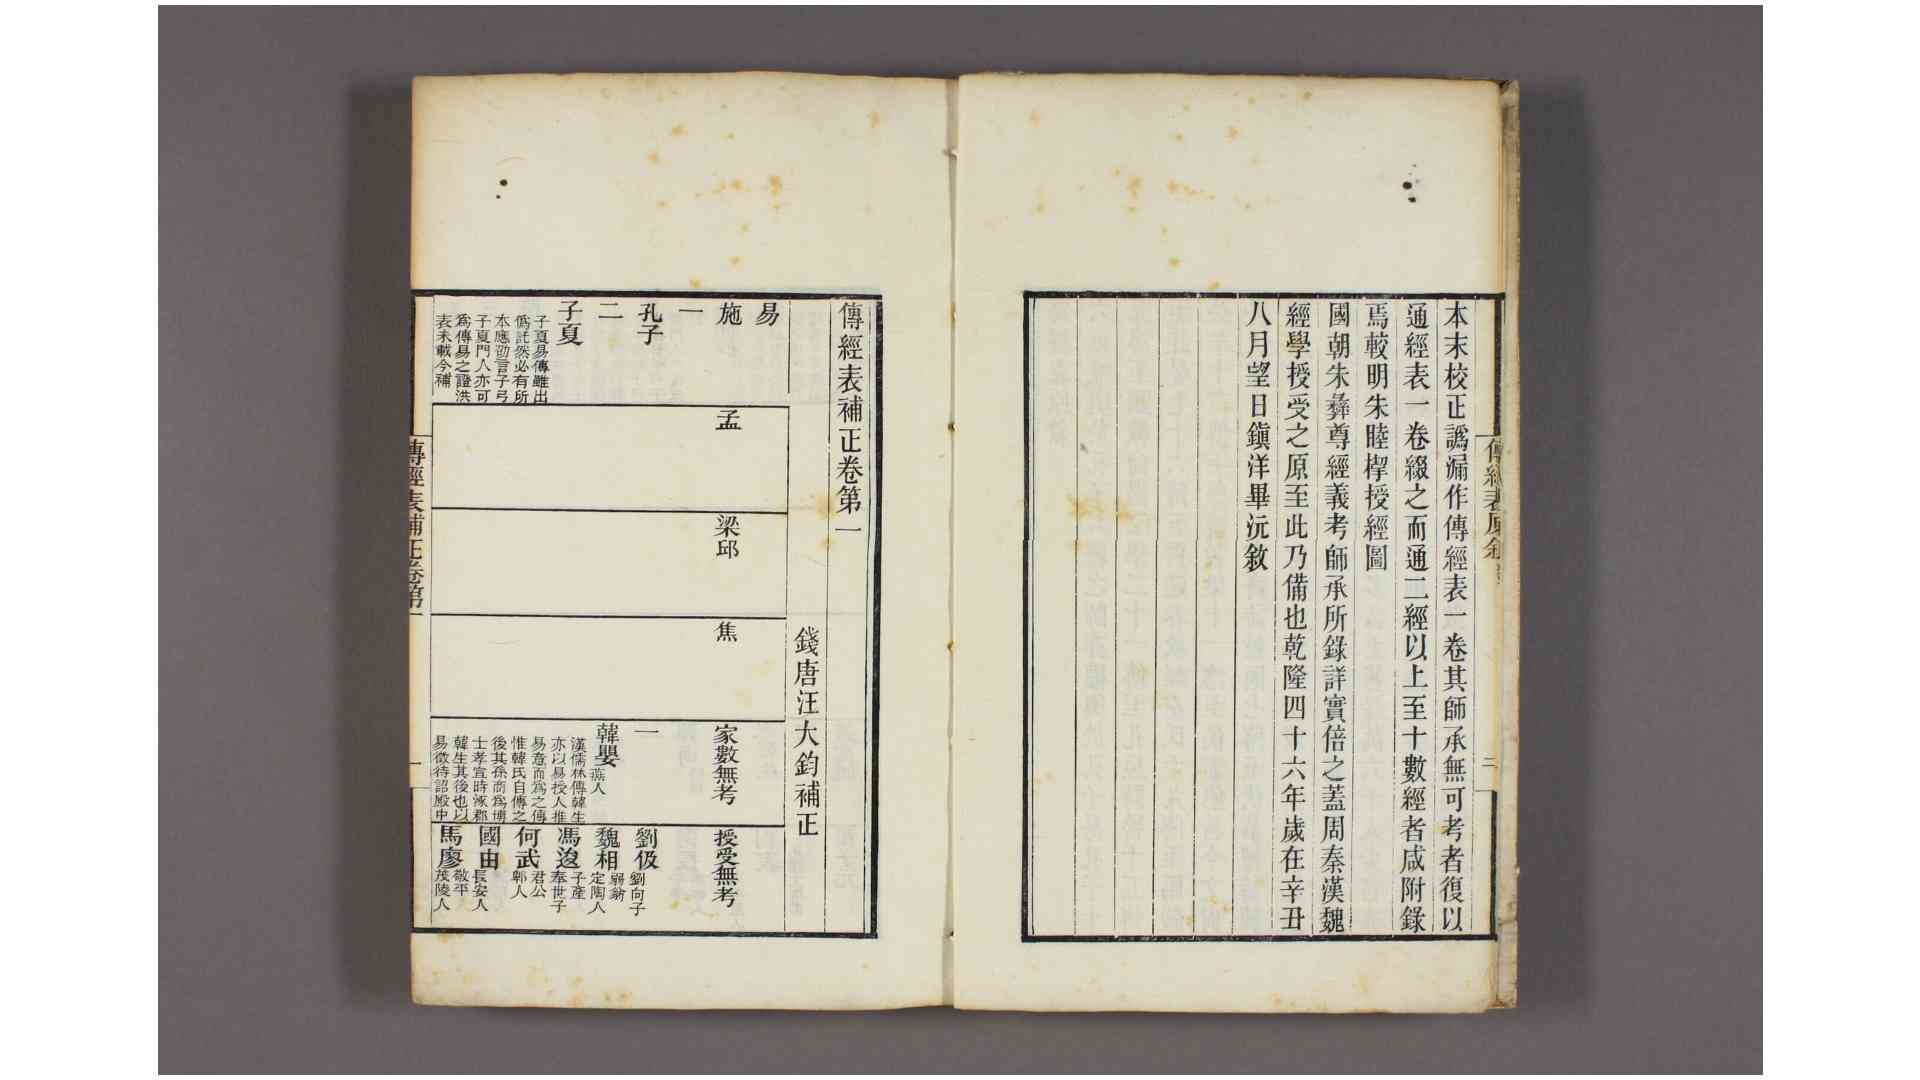 本末校正譌漏作傳經表一卷其師承無可考者復以
通經表一卷綴之而通二經以上至十數經者咸附錄
焉較明朱睦㮮授經圖
國朝朱彝尊經義考師承所錄詳實倍之蓋周秦漢魏
經學授受之原至此乃備也乾隆四十六年歲在辛丑
八月望日鎮洋畢沅敘
二
傳經表補正卷第一
錢唐汪大鈞補正
易
施
孟
梁邱
焦
家數無考
授受無考
一
孔子
二
子夏
子夏易傳雖出
僞託然必有所
本應劭言子弓
子夏門人亦可
爲傳易之證洪
表未載今補
一
韓嬰 燕人
漢儒林傳韓生
亦以易授人推
易意而爲之傳
惟韓氏自傳之
後其孫商爲博
士孝宣時涿郡
韓生其後也以
易徵待詔殿中
劉伋 劉向子
魏相 弱翁 定陶人
馮逡 子產 奉世子
何武 君公 郫人
國由 長安人
馬廖 敬平 茂陵人
傳經表補正卷第一
一